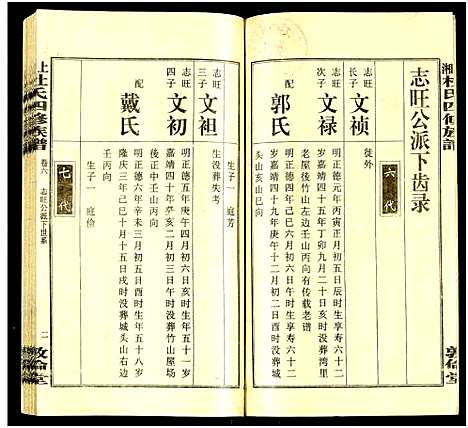 湘杜氏四修族譜
敦倫堂
志旺公派下齿录
六代
志旺长子 文祯 徙外
志旺次子 文禄
明正德元年丙寅正月初五日巳时生享寿六十二
岁嘉靖四十五年丁卯九月二十日亥时没葬湾里
老屋後竹山左边壬山丙向有传载老谱
配 郭氏
明正德五年庚午二月初二日亥时生享寿六十
岁嘉靖四十九年庚午十二月初一日亥时没葬
头山亥山巳向
志旺三子 文袒
生没葬失考
生子一 庭芳
志旺四子 文初
明正德五年庚午四月初六日寅时生年五十一
岁嘉靖四十年辛酉二月初三日亥时没葬竹山屋场
後正中壬山丙向
配 戴氏
明正德六年辛未三月初五日酉时生年五十八岁
隆庆三年己巳十月十五日戌时没葬城头山右边
壬丙向
生子一 庭俭
七代
上杜氏四修族譜
卷六 志旺公派下世系
二
敦倫堂